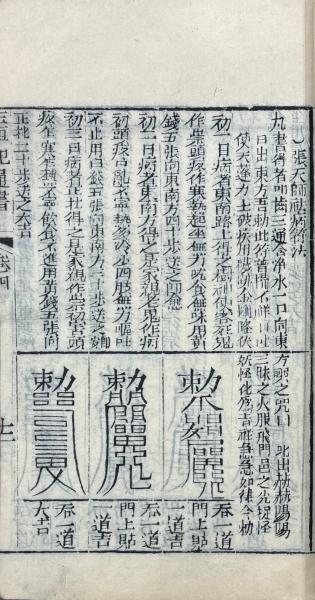 張天師祛病符法
凡書符者叩齒三通含淨水一口向東方噀之咒曰 赫赫陽陽
日出東方吾勅此符普掃不祥口吐三昧之火服飛門邑之光捉怪
使天蓬力士破病用穢跡金剛降伏妖怪化為吉祥急急如律令勅
初一日病者東南路上得之樹神使客死鬼
作祟頭疼作寒熱起坐無力吃食無味用黃
錢五張向東南方四十步送之即愈
初二日病者東南方得之是家親老鬼作病
初頭疼口亂不寧熱多冷少四肢無力嘔吐
不止用白錢五張向東南方三十步送之
初三日病者正北得之是家親作祟害頭
疼作寒發熱不寧飲食不進用黃錢五張向
正北二十步送之大吉
吞一道
門上貼
一道吉
吞一道
門上貼
一道吉
吞一道
大吉
玉匣記通書
卷四